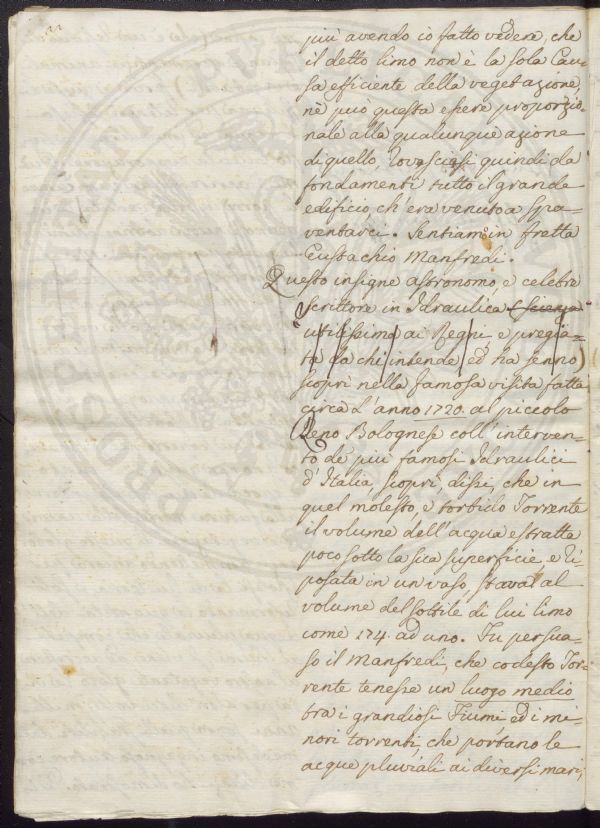 più avendo io fatto vedere, che
il detto limo non è la sola Cau-
sa efficiente della vegetazione,
nè può questa essere proporzio-
nale alla qualunque azione
di quello, rovasciasi quindi da
fondamenti tutto il grande
edificio, ch'era venuto a spa-
ventarci. Sentiamo in fretta
Eustachio Manfredi.
Questo insigne astronomo, e celebre
Scrittore in Idraulica (scienza
utilissima ai Regni e pregia-
ta da chi intende, ed ha senno)
scoprì nella famosa visita fatta
circa l'anno 1720. al piccolo
Reno Bolognese coll'interven-
to de' più famosi Idraulici
d'Italia, scoprì, dissi, che in
quel molesto, e torbido Torrente
il volume dell'acqua estratta
poco sotto la sua superficie, e ri-
posata in un vaso, stava al
volume del sottile di lui limo
come 174. ad uno. Fu persua-
so il Manfredi, che codesto Tor-
rente tenesse un luogo medio
tra i grandiosi Fiumi ed i mi-
nori torrenti, che portano le
acque pluviali ai diversi mari;
PROSPERI